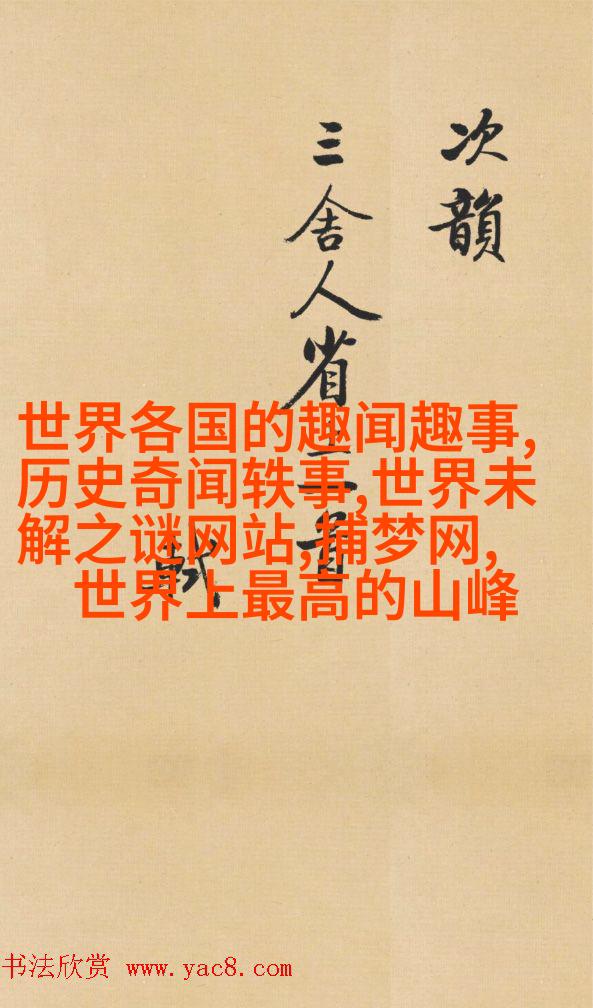 次韻
三舍人省上一首
軾
世界各国的趣闻趣事,
历史奇闻轶事,世界未
解之谜网站,捕梦网,
世界上最高的山峰
书法欣赏 www.yac8.com